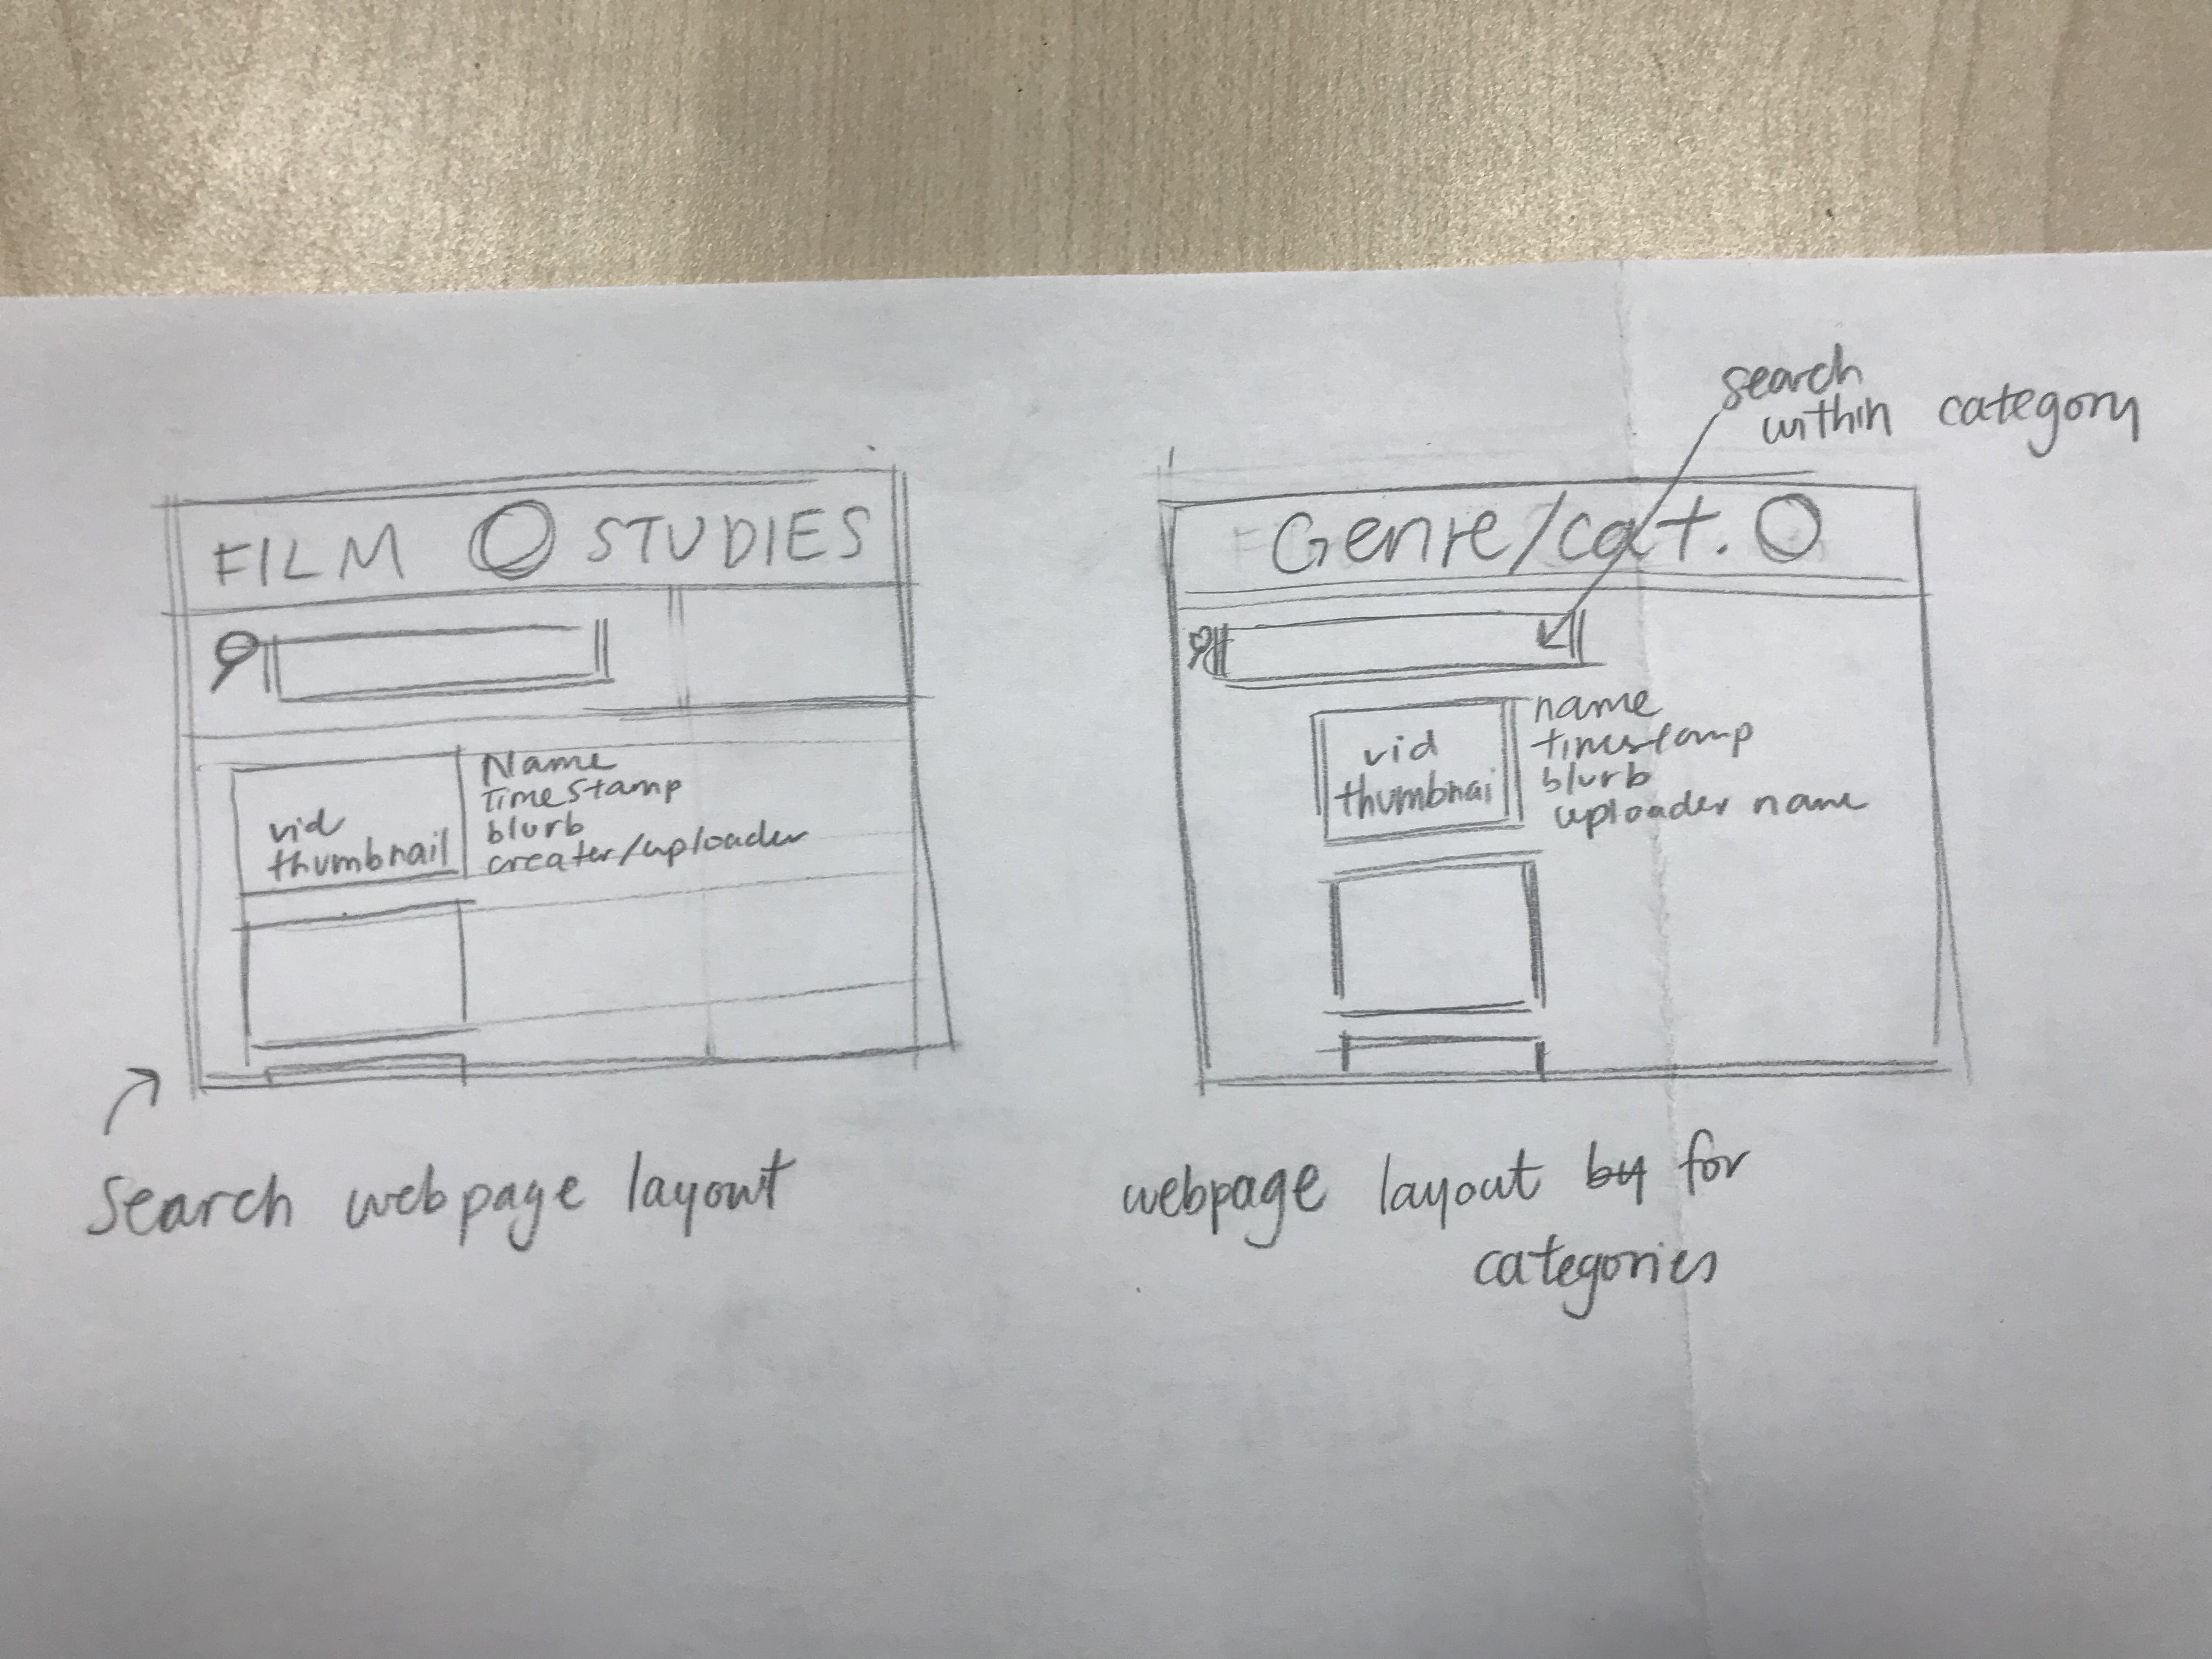 FILM STUDIES
vid
thumbnail
Name
Timestamp
blurb
creater/uploader
Search webpage layout
search
within category
Genre/cat.
vid
thumbnai
name
timestamp
blurb
uploader name
webpage layout by for
categories